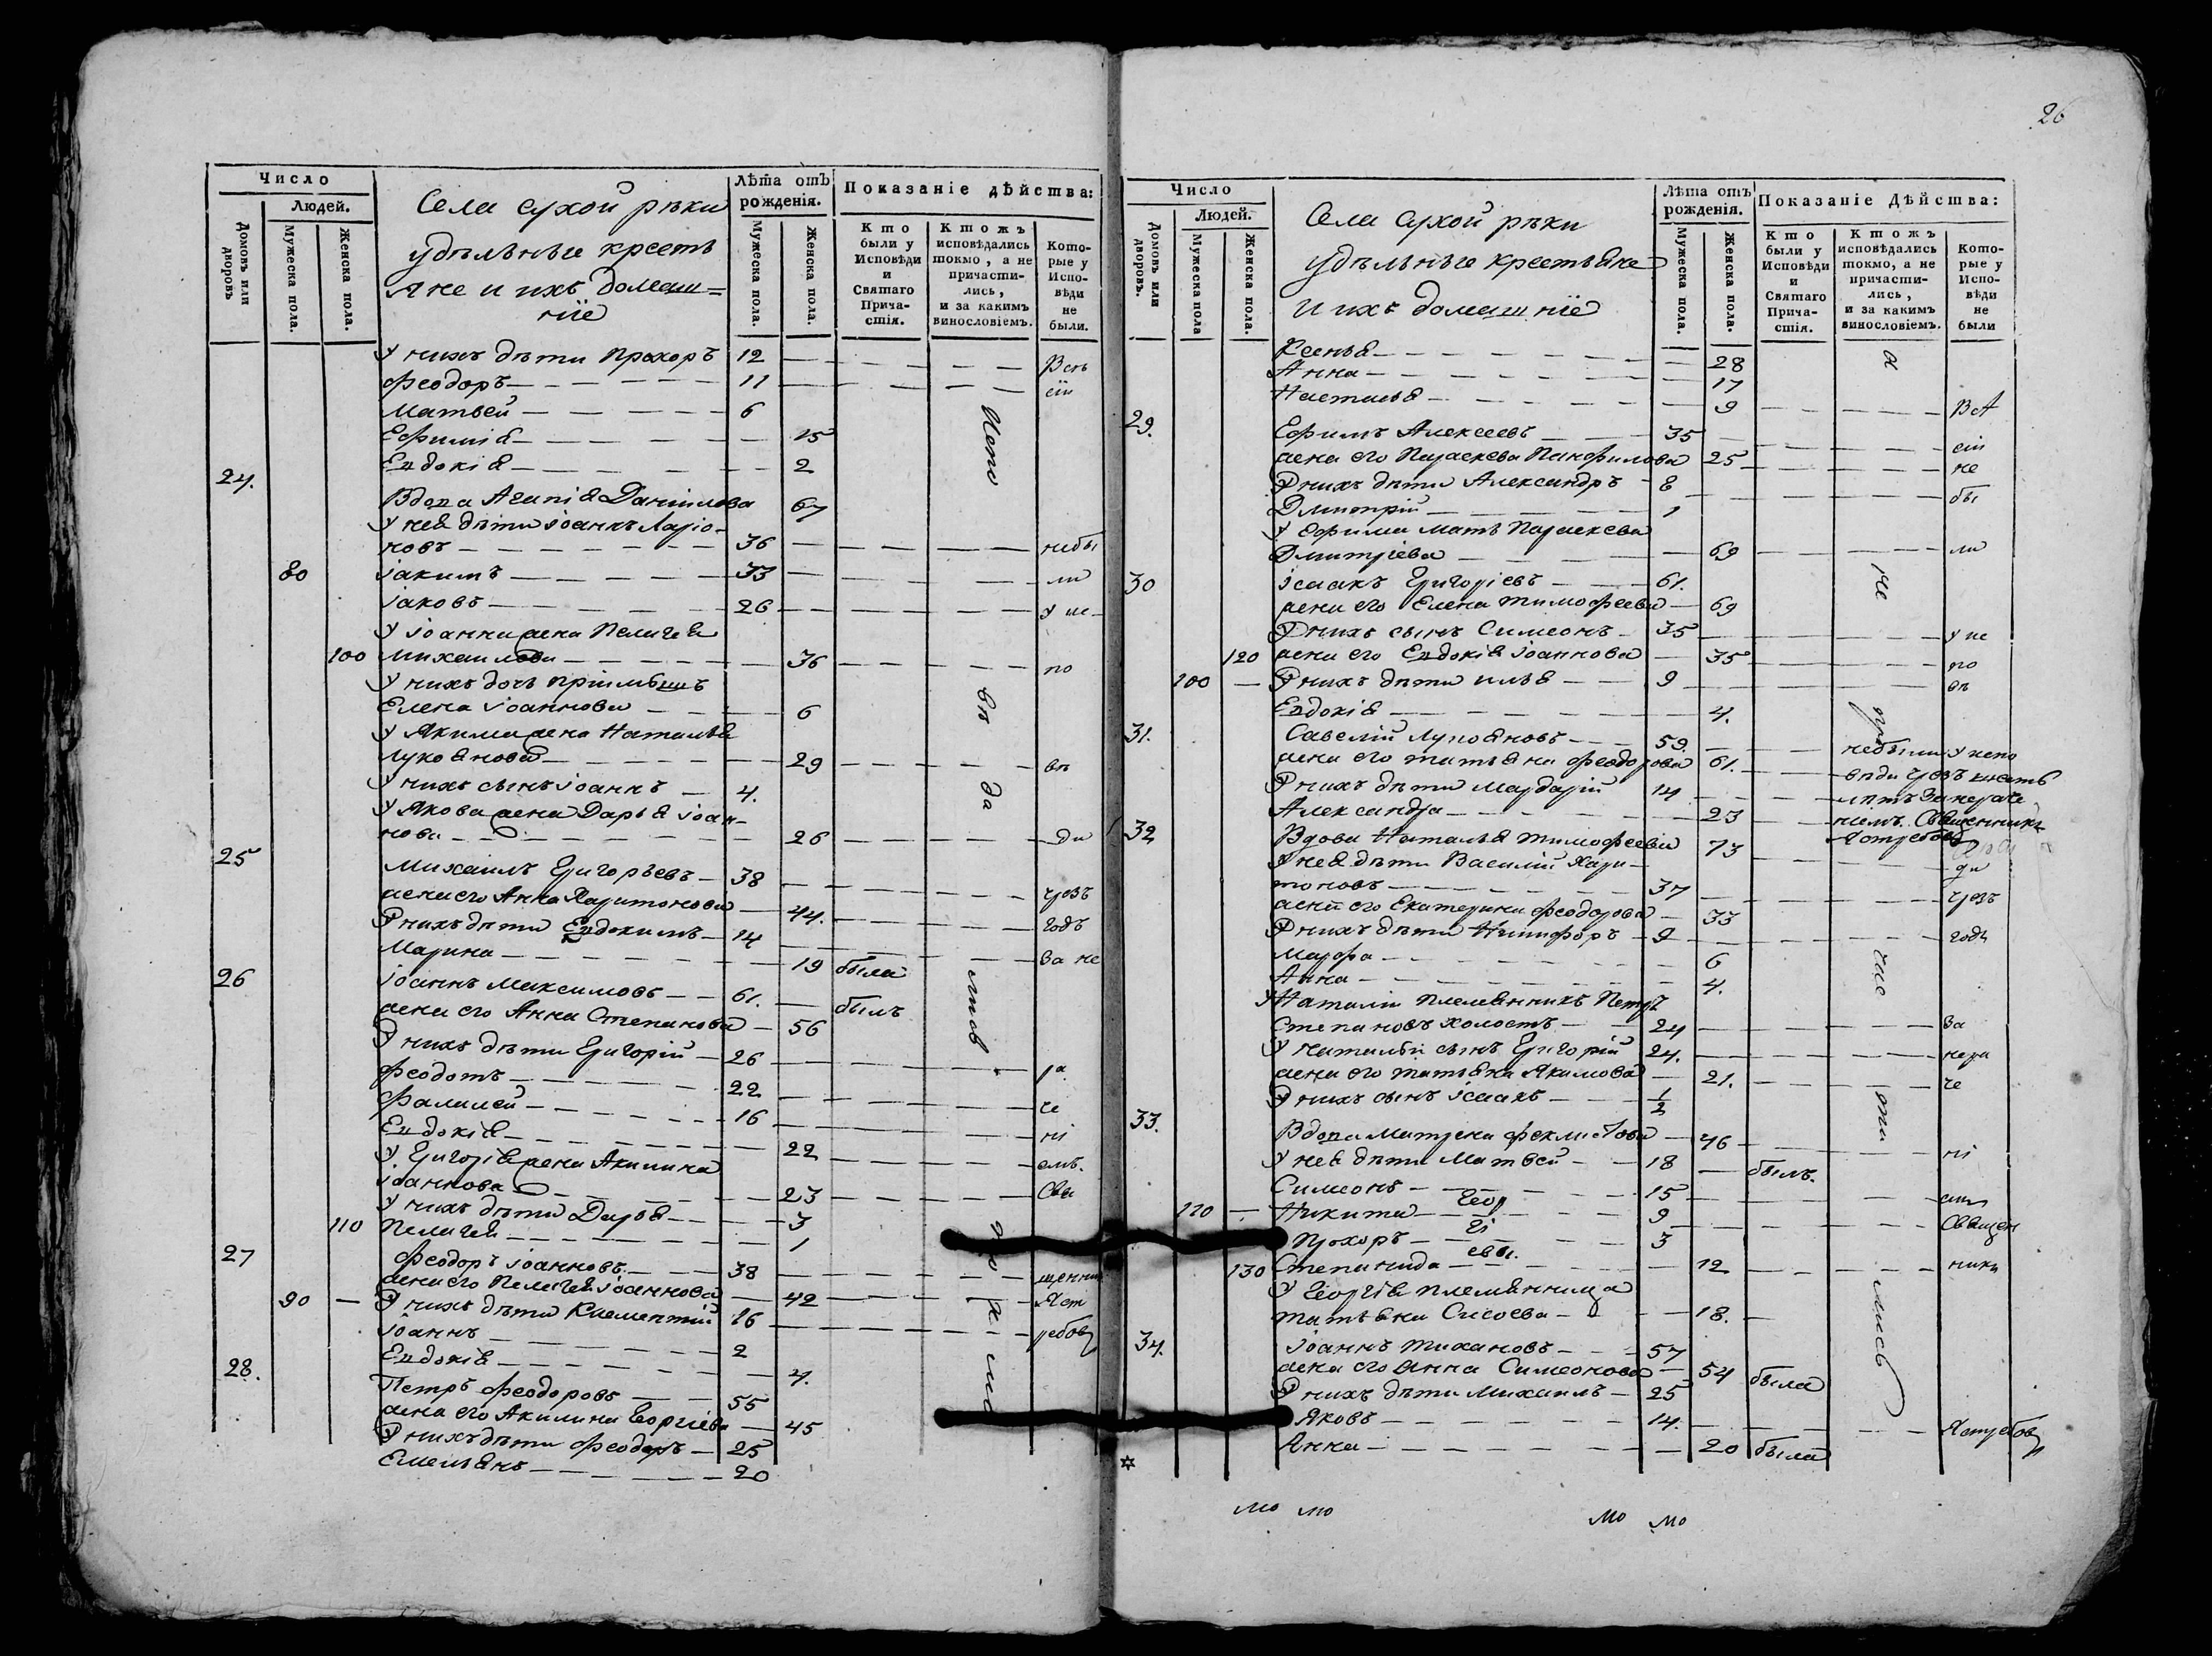 26
Число
Людей.
Домовъ или дворовъ
Мужеска пола.
Женска пола.
Села сухой рѣки
удѣльныге крестъ
яне и ихъ домаш=
ніе
Лѣта отъ рожденія.
Мужеска пола.
Женска пола.
Показаніе дѣйства:
Кто были у Исповѣди и Святаго Причастія.
Ктожъ исповѣдались токмо, а не причастились, и за какимъ винословіемъ.
Которые у Исповѣди не были.
У нихъ дѣти Прохоръ 12
Феодоръ 11
Матвей 6
Ефимія 15
Евдокія 2
24.
Вдова Агапія Даниилова 67
У нея дѣти Іоаннъ Ларіо-
новъ 36 небы
80 Іакимъ 33 ли
Іаковъ 26 у ис
У Іоанна жена Пелагея
100 Михаилова 36 по
У нихъ дочь
Елена Іоаннова 6
У Якима жена Наталья
Лукоянова 29 вѣ
У нихъ сынъ Іоаннъ 4.
У Якова жена Дарья Іоан-
нова 26 ди
25
Михаилъ Григорьевъ 38
жена его Анна Харитонова 44. чрезъ
У нихъ дѣти Евдокимъ 14 годъ
Марина 19 была за не
26
Іоаннъ Максимовъ 61. былъ
жена его Анна Степанова 56
У нихъ дѣти Григорій 26 ра
Феодотъ 22
Фалилей 16 че
Евдокія 22 ні
У Григорія жена Акилина емъ.
Іоаннова 23 Свя
У нихъ дѣти Дарья 3
110 Пелагея 1
27 Феодоръ Іоанновъ 38 щенни
жена его Пелагея Іоаннова 42 Яст
90 У нихъ дѣти Климентий 16 ребов
Іоаннъ 2
Евдокія 4.
28.
Петръ Феодоровъ 55
жена его Акилина Георгіева 45
У нихъ дѣти Феодоръ 25
Емельянъ 20
Число
Людей.
Домовъ или дворовъ.
Мужеска пола
Женска пола.
Села сухой рѣки
удѣльныге крестьяне
и ихъ домашніе
Лѣта отъ рожденія.
Мужеска пола.
Женска пола.
Показаніе Дѣйства:
Кто были у Исповѣди и Святаго Причастія.
Ктожъ исповѣдались токмо, а не причастились, и за какимъ винословіемъ.
Которые у Исповѣди не были
Ксенья 28
Анна 17
Настасья 9
29.
Ефимъ Алексеевъ 35
жена его Параскева Панфилова 25 не
У нихъ дѣти Александръ 8 бы
Дмитрій 1
У Ефима мать Параскева
Дмитріева 69 ли
30 Ісаакъ Григоріевъ 61.
жена его Елена Тимофеева 69
У нихъ сынъ Симеонъ 35 у ис
120 жена его Евдокія Іоаннова 35 по
100 У нихъ дѣти Илья 9 вѣ
Евдокія 4.
31. Савелій Лукояновъ 59.
жена его Татьяна Феодорова 61. небыли у испо
У нихъ дѣти Мардарій 14 вѣди чрезъ
Александра 23 лѣтъ за нераче
32 ніемъ. Священникъ
Вдова Наталья Тимофеева 73 Ястребовъ
У нея дѣти Василій Хари- ди
тоновъ 37 чрезъ
жена его Екатерина Феодорова 33
У нихъ дѣти Никифоръ 9 годъ
Марфа 6
Анна 4.
У Наталіи племянникъ Петръ
Степановъ холостъ 24 за
У Натальи сынъ Григорій 24. нера
жена его Татьяна Якимова 21. че
У нихъ сынъ Ісаакъ 1/2
33.
Вдова Матрена Феклистова 46 ні
У нея дѣти Матвей 18 былъ.
Симеонъ 15 емъ
110 Никита Геор 9 Священ
Прохоръ гі 3
130 Степанида евы. 12 ники
У Георгія племянница
Татьяна Сисоева 18.
34. Іоаннъ Тихановъ 57
жена его Анна Симеонова 54 была
У нихъ дѣти Михаилъ 25
Яковъ 14. Ястребов
Анна 20 была